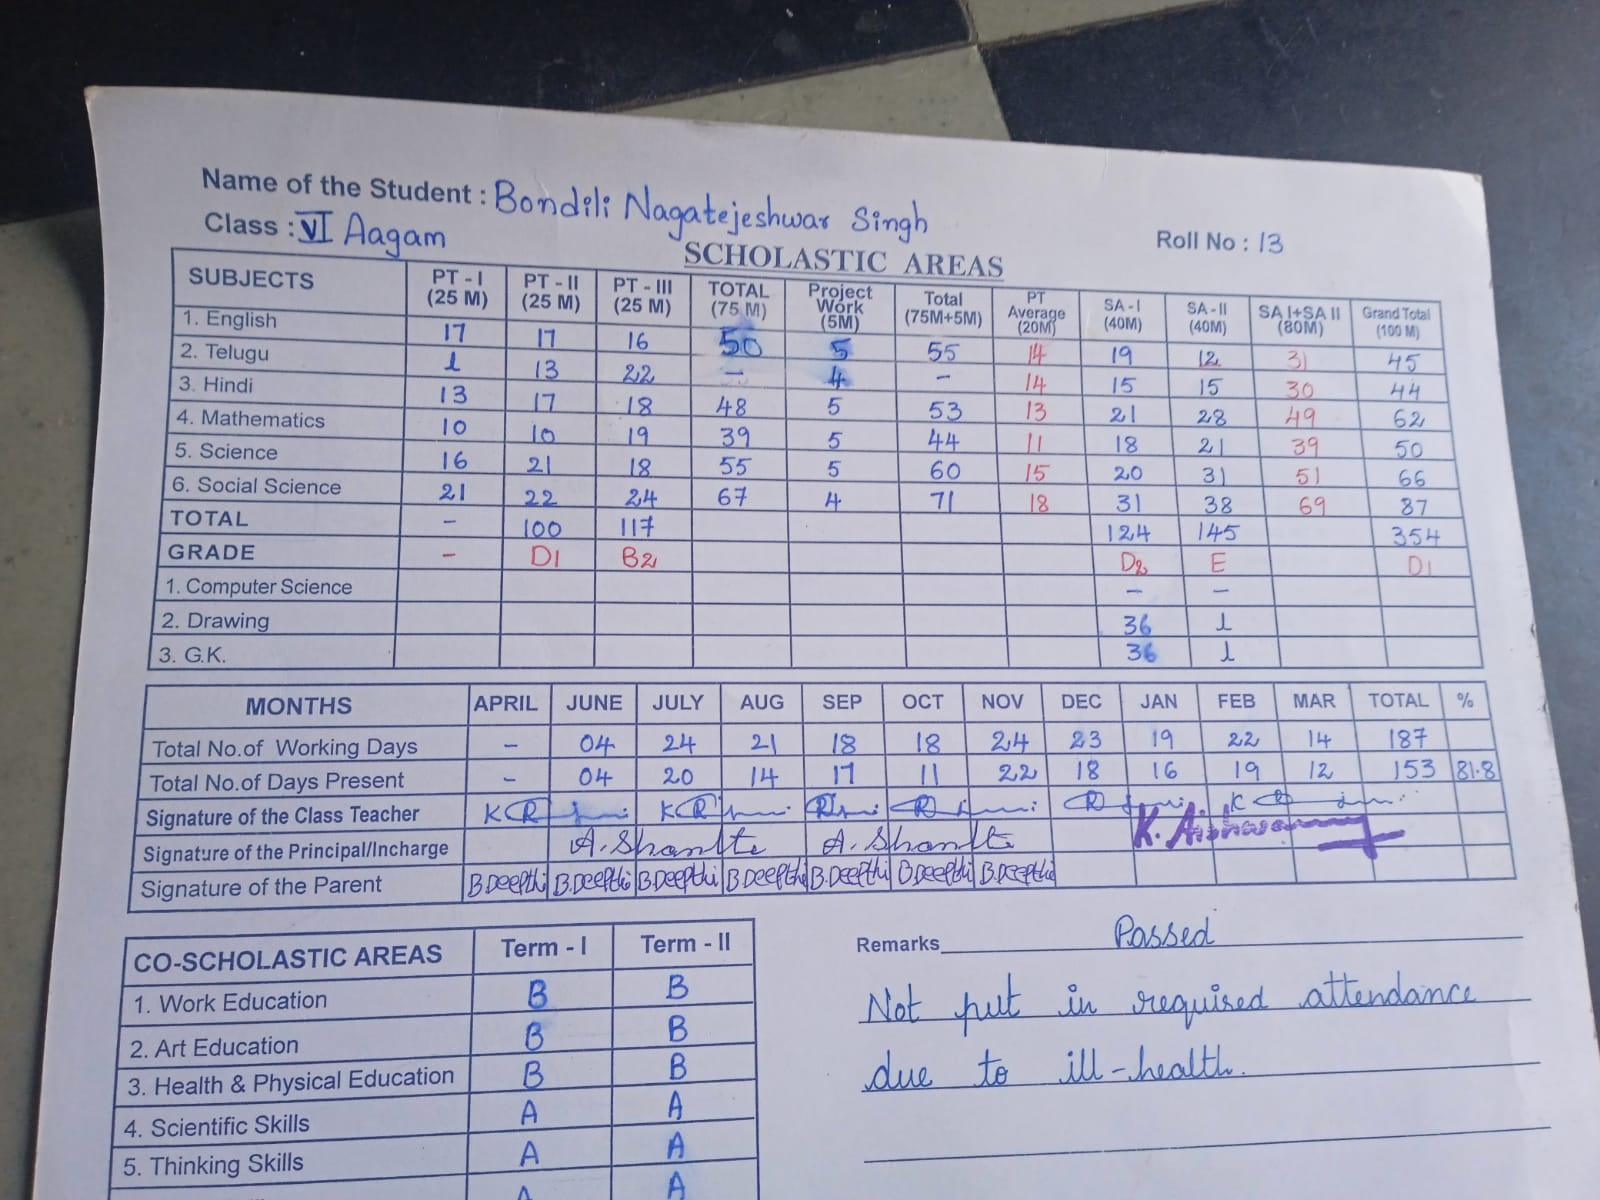 Name of the Student : Bondili Nagatejeshwar Singh
Class : VI Aagam
Roll No : 13
SCHOLASTIC AREAS
SUBJECTS PT - I (25 M) PT - II (25 M) PT - III (25 M) TOTAL (75 M) Project Work (5M) Total (75M+5M) PT Average (20M) SA - I (40M) SA - II (40M) SA I+SA II (80M) Grand Total (100 M)
1. English 17 17 16 50 5 55 14 19 12 31 45
2. Telugu l 13 22 - 4 - 14 15 15 30 44
3. Hindi 13 17 18 48 5 53 13 21 28 49 62
4. Mathematics 10 10 19 39 5 44 11 18 21 39 50
5. Science 16 21 18 55 5 60 15 20 31 51 66
6. Social Science 21 22 24 67 4 71 18 31 38 69 87
TOTAL - 100 117 124 145 354
GRADE - D1 B2 D2 E D1
1. Computer Science - -
2. Drawing 36 l
3. G.K. 36 l
MONTHS APRIL JUNE JULY AUG SEP OCT NOV DEC JAN FEB MAR TOTAL %
Total No.of Working Days - 04 24 21 18 18 24 23 19 22 14 187
Total No.of Days Present - 04 20 14 17 11 22 18 16 19 12 153 81.8
Signature of the Class Teacher
Signature of the Principal/Incharge A. Shanthi A. Shanthi K. Aishwarya
Signature of the Parent B.Deepthi B.Deepthi B.Deepthi B.Deepthi B.Deepthi B.Deepthi B.Deepthi
CO-SCHOLASTIC AREAS Term - I Term - II
1. Work Education B B
2. Art Education B B
3. Health & Physical Education B B
4. Scientific Skills A A
5. Thinking Skills A A
A A
Remarks Passed
Not put in required attendance
due to ill-health.